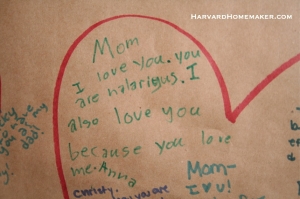 HARVARDHOMEMAKER.COM
Mom
I love you. you
are halarigus. I
also love you
because you love
me. Anna
Christy.
you are
Mom-
I ♥ U!
you
my
dad!